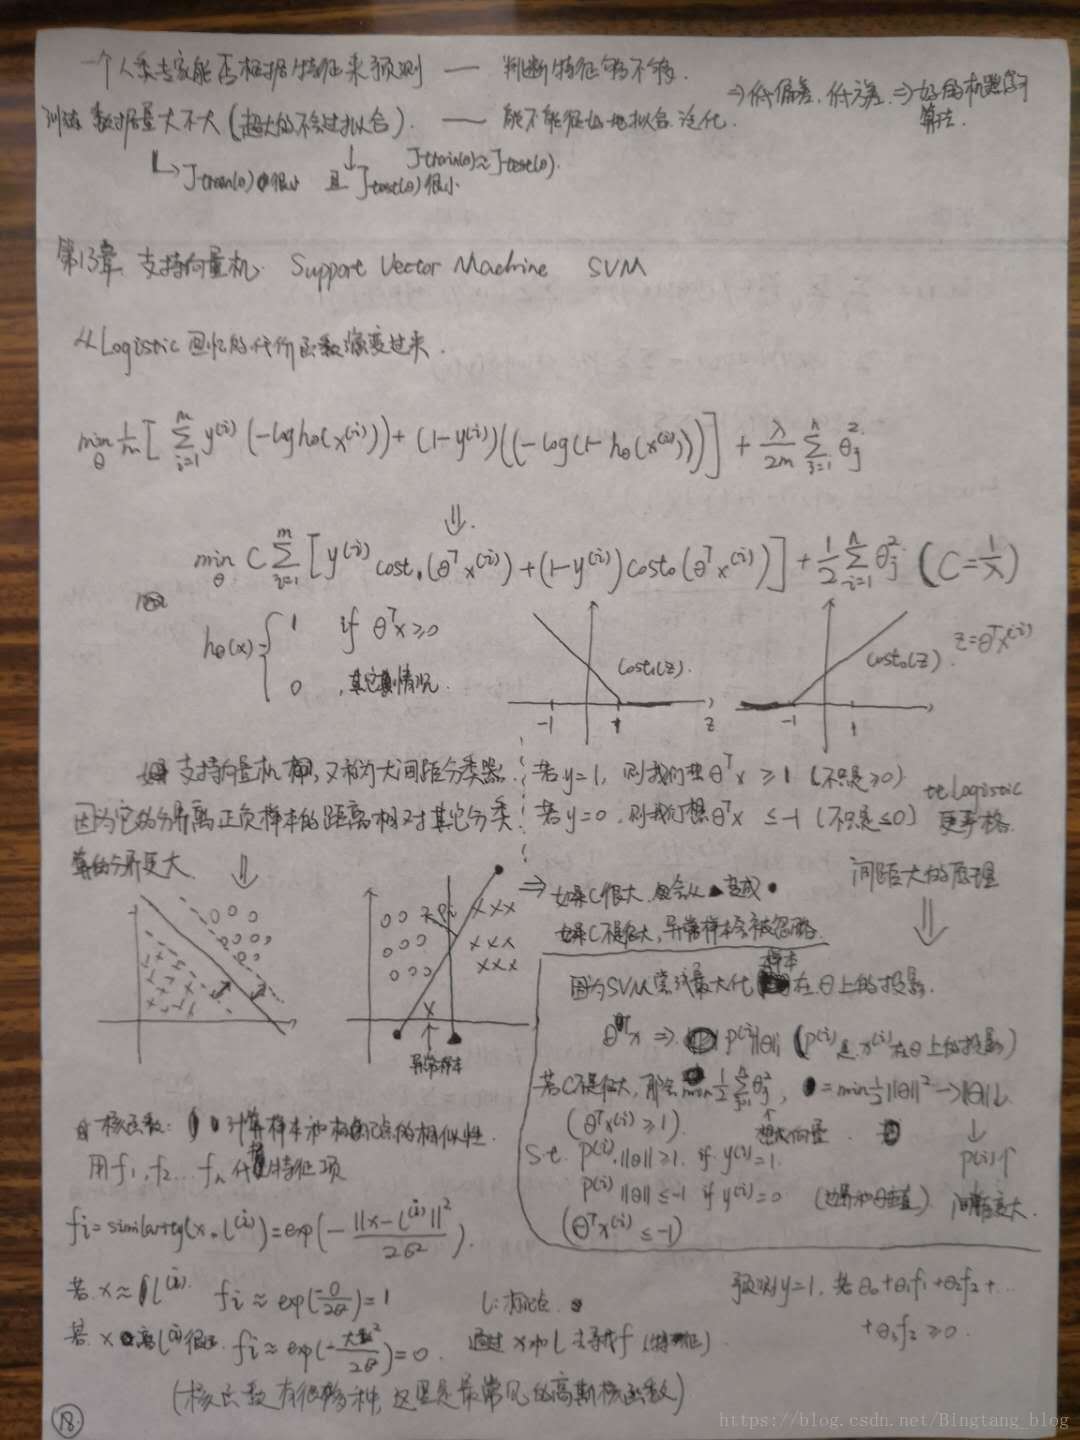 一个人类专家能否根据特征来预测 —— 判断特征够不够.
训练数据量大不大(超大的不会过拟合). —— 能不能很好地拟合泛化.
⇒低偏差,低方差 ⇒好的机器学习算法.
↳ Jtrain(θ)很小 且 Jtest(θ)很小
Jtrain(θ)≈Jtest(θ).
第13章、支持向量机. Support Vector Machine SVM
从Logistic回归的代价函数演变过来.
min_θ 1/m [ Σ_{i=1}^{m} y^(i) (-log hθ(x^(i))) + (1-y^(i))((-log(1-hθ(x^(i)))) ] + λ/2m Σ_{j=1}^{n} θ_j^2
⇓
min_θ C Σ_{i=1}^{m} [ y^(i) cost₁(θ^T x^(i)) + (1-y^(i)) cost₀(θ^T x^(i)) ] + 1/2 Σ_{i=1}^{n} θ_j^2 (C=1/λ)
hθ(x)= { 1 if θ^T x ≥0
0 , 其它情况.
cost₁(z). -1 1 z
cost₀(z). -1 1
z=θ^T x^(i)
支持向量机,又称为大间距分类器.
因为它的分界离正负样本的距离相对其它分类
算的分界更大
若y=1, 则我们想θ^T x ≥1 (不只是≥0)
若y=0, 则我们想θ^T x ≤-1 (不只是≤0)
比Logistic
更严格.
⇒ 如果C很大,会从▲变成●
如果C不是很大,异常样本会被忽略.
异常样本
间距大的原理
⇓
因为SVM尝试最大化样本在θ上的投影.
θ^T x ⇒ p^(i)||θ|| (p^(i)是x^(i)在θ上的投影)
若C不是很大, min 1/2 Σ_{j=1}^{n} θ_j^2, = min 1/2 ||θ||^2 → ||θ||↓
(θ^T x^(i) ≥1).
↓
s.t. p^(i)·||θ||≥1. if y^(i)=1.
p^(i)↑
p^(i)||θ||≤-1 if y^(i)=0 (边界和θ垂直)
间距变大.
(θ^T x^(i) ≤-1)
核函数: 计算样本和标记点的相似性.
用f₁,f₂...fₙ代替特征项
fi=similarity(x, l^(i))=exp(- ||x-l^(i)||^2 / 2δ^2).
若x≈l^(i). fi≈exp(-0/2δ^2)=1
l:标记点.
若x离l^(i)很远 fi≈exp(-大数^2/2δ^2)=0.
通过x和l去寻找f(特征)
预测y=1, 若θ₀+θ₁f₁+θ₂f₂+...
+θ₃f₂≥0.
(核函数有很多种,这里是最常见的高斯核函数)
18
https://blog.csdn.net/Bingtang_blog